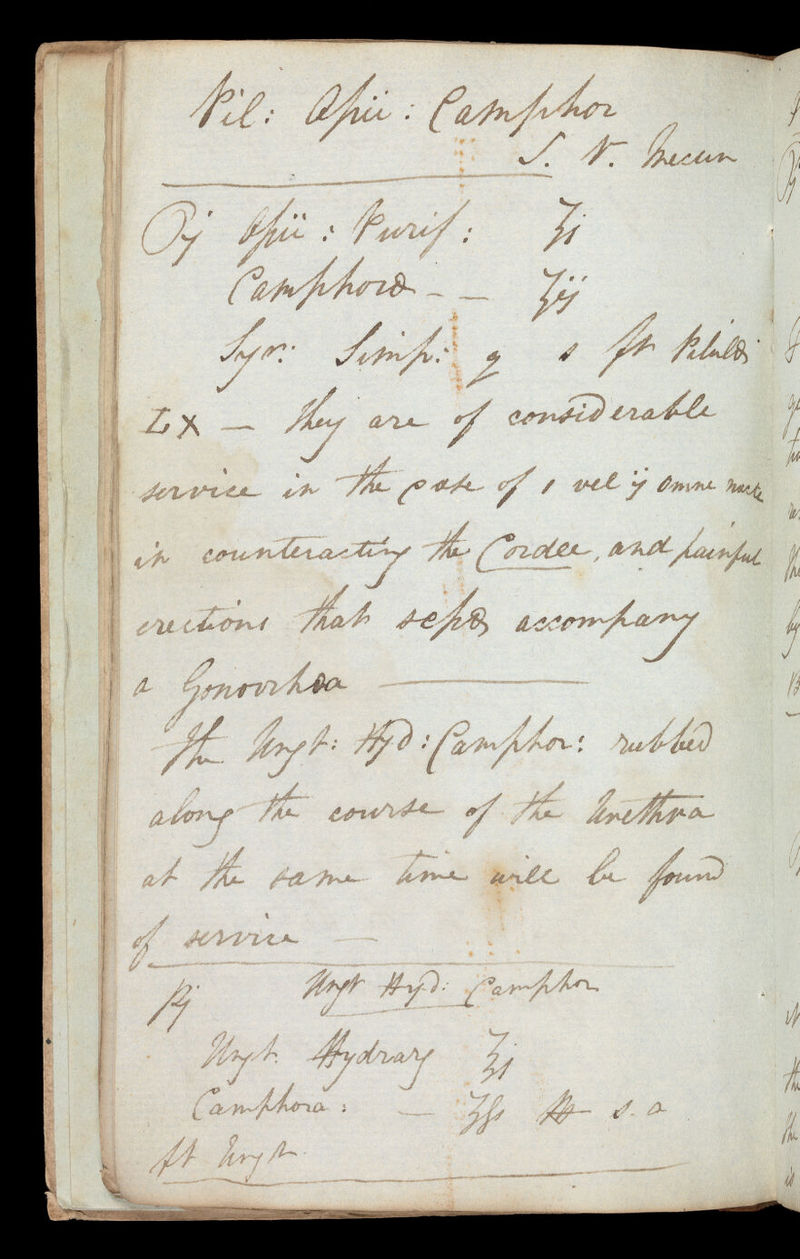 Pil: Opii: Camphor
S. V. Mecum
Rj Opii: Purif: ʒj
Camphoræ - - ʒij
Syr: Simp: q s ft Pilulæ
LX — they are of considerable
service in the case of 1 vel ij omne nocte
in counteracting the Cordee, and painful
erections that sepæ accompany
a Gonorrhœa
The Ungt: Hyd: Camphor: rubbed
along the course of the Urethra
at the same time will be found
of service —
Rj Ungt Hyd: Camphor
Ungt. Hydrarg ʒj
Camphora: — ʒſs M s. a
ft Ungt.